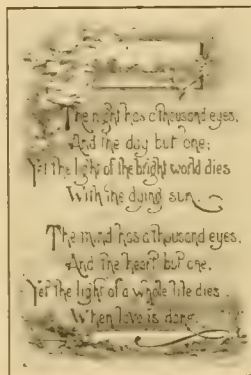 The night has a thousand eyes,
And the day but one;
Yet the light of the bright world dies
With the dying sun.
The mind has a thousand eyes,
And the heart but one,
Yet the light of a whole life dies
When love is done.